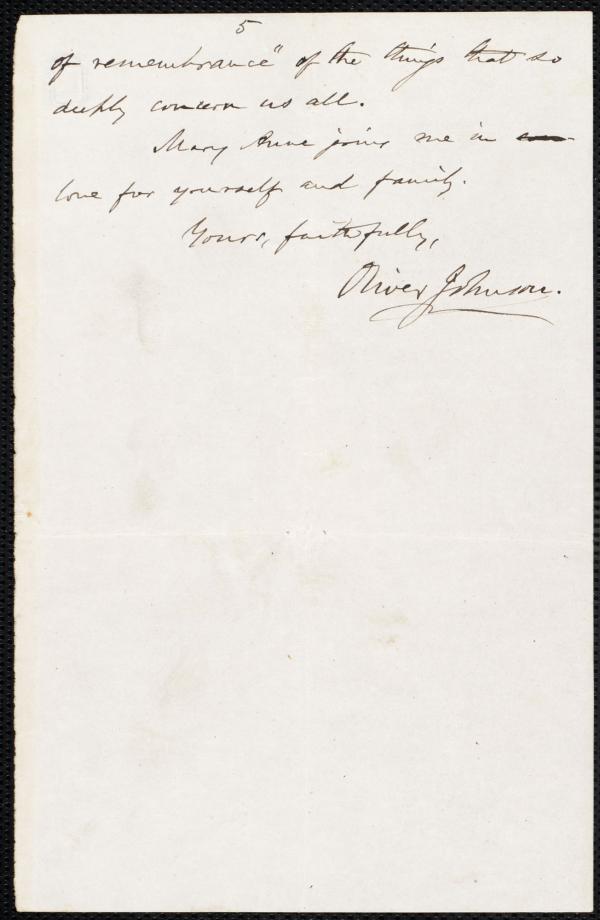 5
of remembrance" of the things that so
deeply concern us all.
Mary Anne joins me in
love for yourself and family.
Yours, faithfully,
Oliver Johnson.